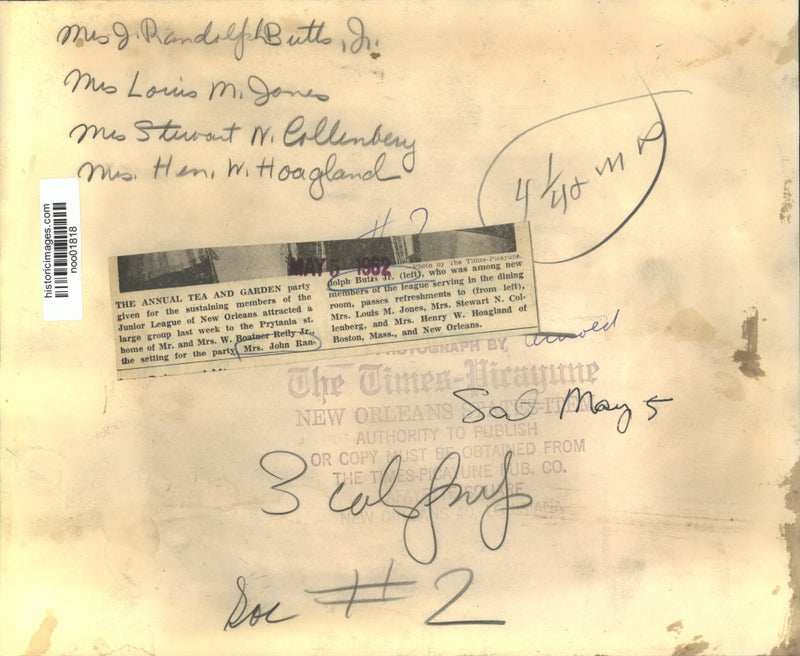 Mrs J. Randolph Butts, Jr.
Mrs Louis M. Jones
Mrs Stewart N. Collenberg
Mrs. Hen. W. Hoagland
historicimages.com
noo01818
#2
MAY 5 1962
Photo by The Times-Picayune.
THE ANNUAL TEA AND GARDEN party
given for the sustaining members of the
Junior League of New Orleans attracted a
large group last week to the Prytania st.
home of Mr. and Mrs. W. Boatner Reily Jr.,
the setting for the party. Mrs. John Ran-
dolph Butts Jr. (left), who was among new
members of the league serving in the dining
room, passes refreshments to (from left),
Mrs. Louis M. Jones, Mrs. Stewart N. Col-
lenberg, and Mrs. Henry W. Hoagland of
Boston, Mass., and New Orleans.
PHOTOGRAPH BY,
The Times-Picayune
NEW ORLEANS STATES-ITEM
Sat May 5
AUTHORITY TO PUBLISH
OR COPY MUST BE OBTAINED FROM
THE TIMES-PICAYUNE PUB. CO.
3 col
SQUARE
NEW ORLEANS
Soc #2